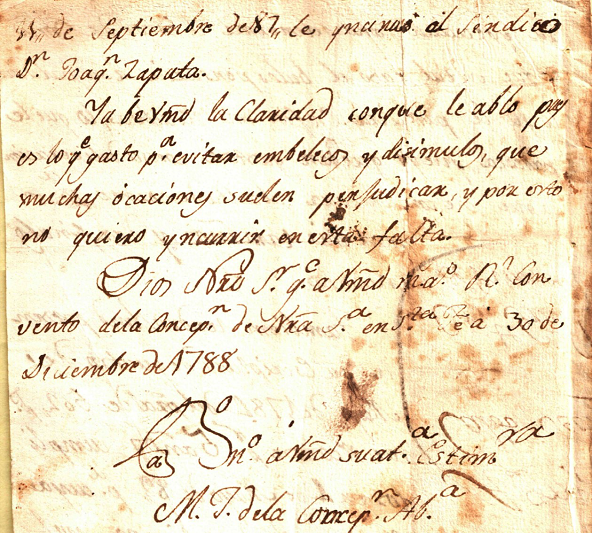 de Septiembre de 87,, le yncinué al Sindico
Dn. Joaqn. Zapata.
Ya be Vmd la Claridad conque le ablo pues
es lo qe. gasto pa. evitar embelecos, y disimulos, que
muchas ócaciones suelen perjudicar, y por esto
no quiero yncurrir en esta falta.
Dios Nro Sr. ge. a Vmd ms. as. Rl. Con
vento de la Concepn. de Nra Sa. en á 30 de
Diciembre de 1788
Bo.
La mo. á Vmd su at.a Estim
M. T. de la Concepn. Ab.a